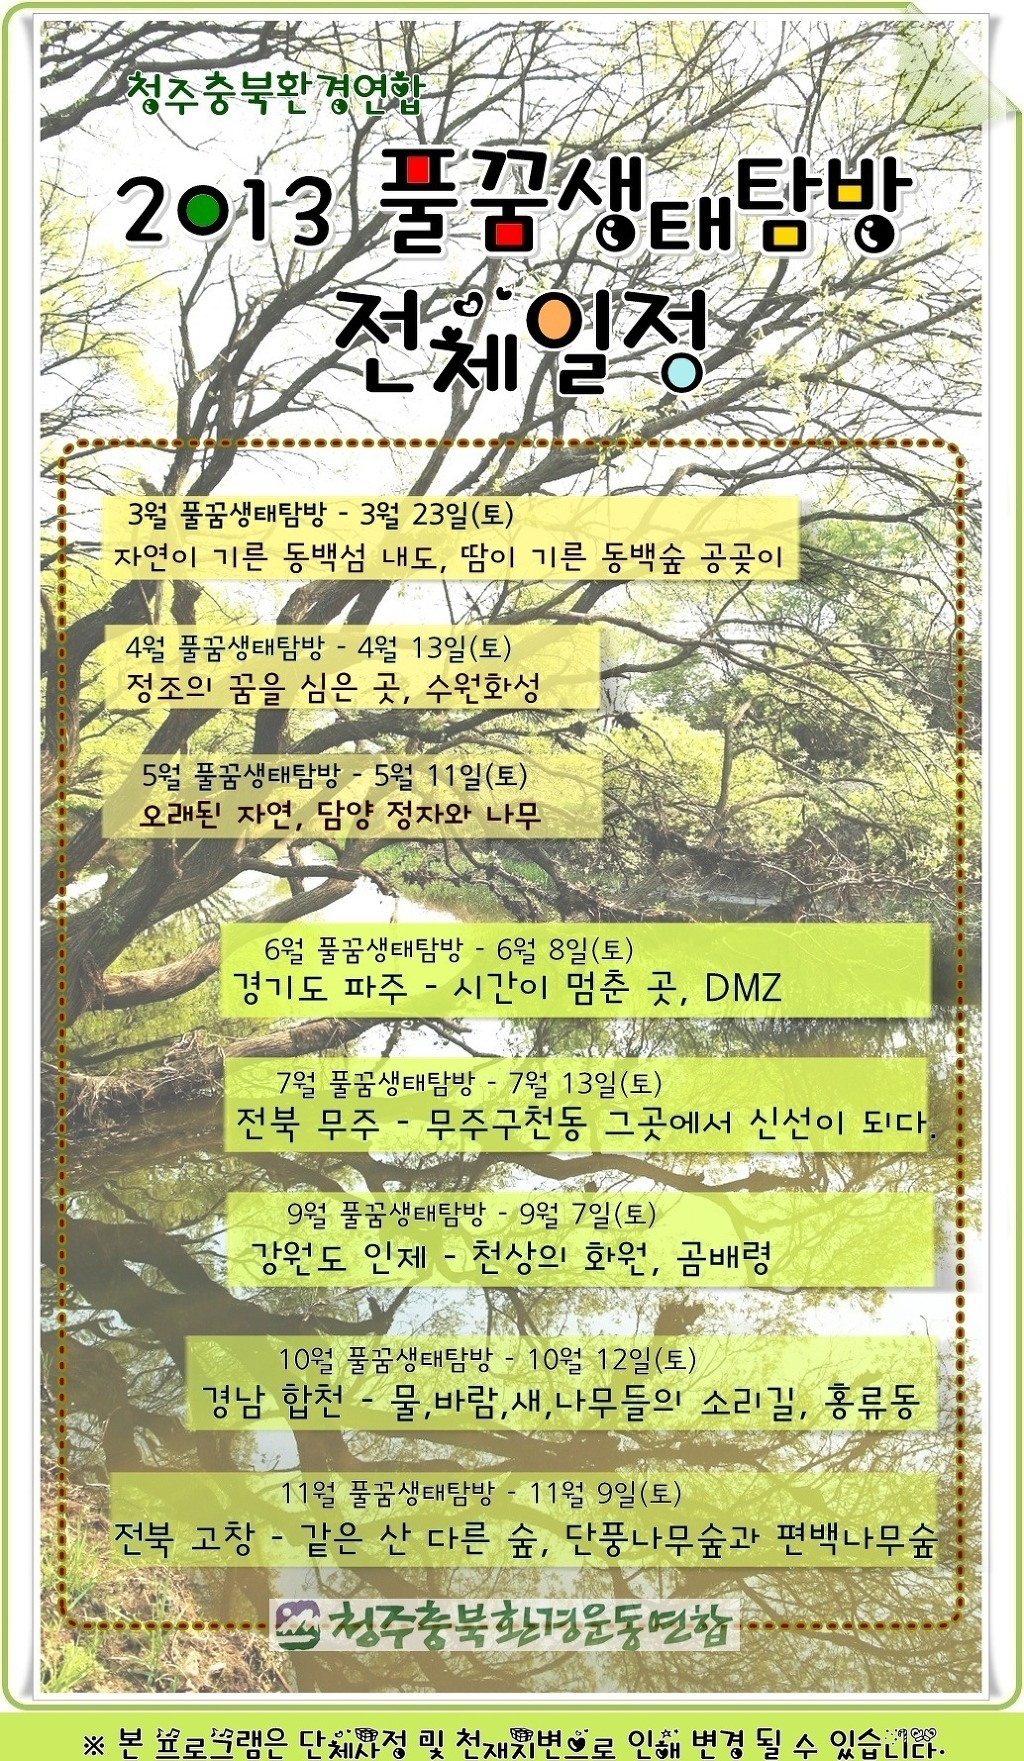 청주충북환경연합
2013 풀꿈생태탐방
전체일정
3월 풀꿈생태탐방 - 3월 23일(토)
자연이 기른 동백섬 내도, 땀이 기른 동백숲 공곶이
4월 풀꿈생태탐방 - 4월 13일(토)
정조의 꿈을 심은 곳, 수원화성
5월 풀꿈생태탐방 - 5월 11일(토)
오래된 자연, 담양 정자와 나무
6월 풀꿈생태탐방 - 6월 8일(토)
경기도 파주 - 시간이 멈춘 곳, DMZ
7월 풀꿈생태탐방 - 7월 13일(토)
전북 무주 - 무주구천동 그곳에서 신선이 되다.
9월 풀꿈생태탐방 - 9월 7일(토)
강원도 인제 - 천상의 화원, 곰배령
10월 풀꿈생태탐방 - 10월 12일(토)
경남 합천 - 물,바람,새,나무들의 소리길, 홍류동
11월 풀꿈생태탐방 - 11월 9일(토)
전북 고창 - 같은 산 다른 숲, 단풍나무숲과 편백나무숲
청주충북환경운동연합
※ 본 프로그램은 단체사정 및 천재지변으로 인해 변경 될 수 있습니다.